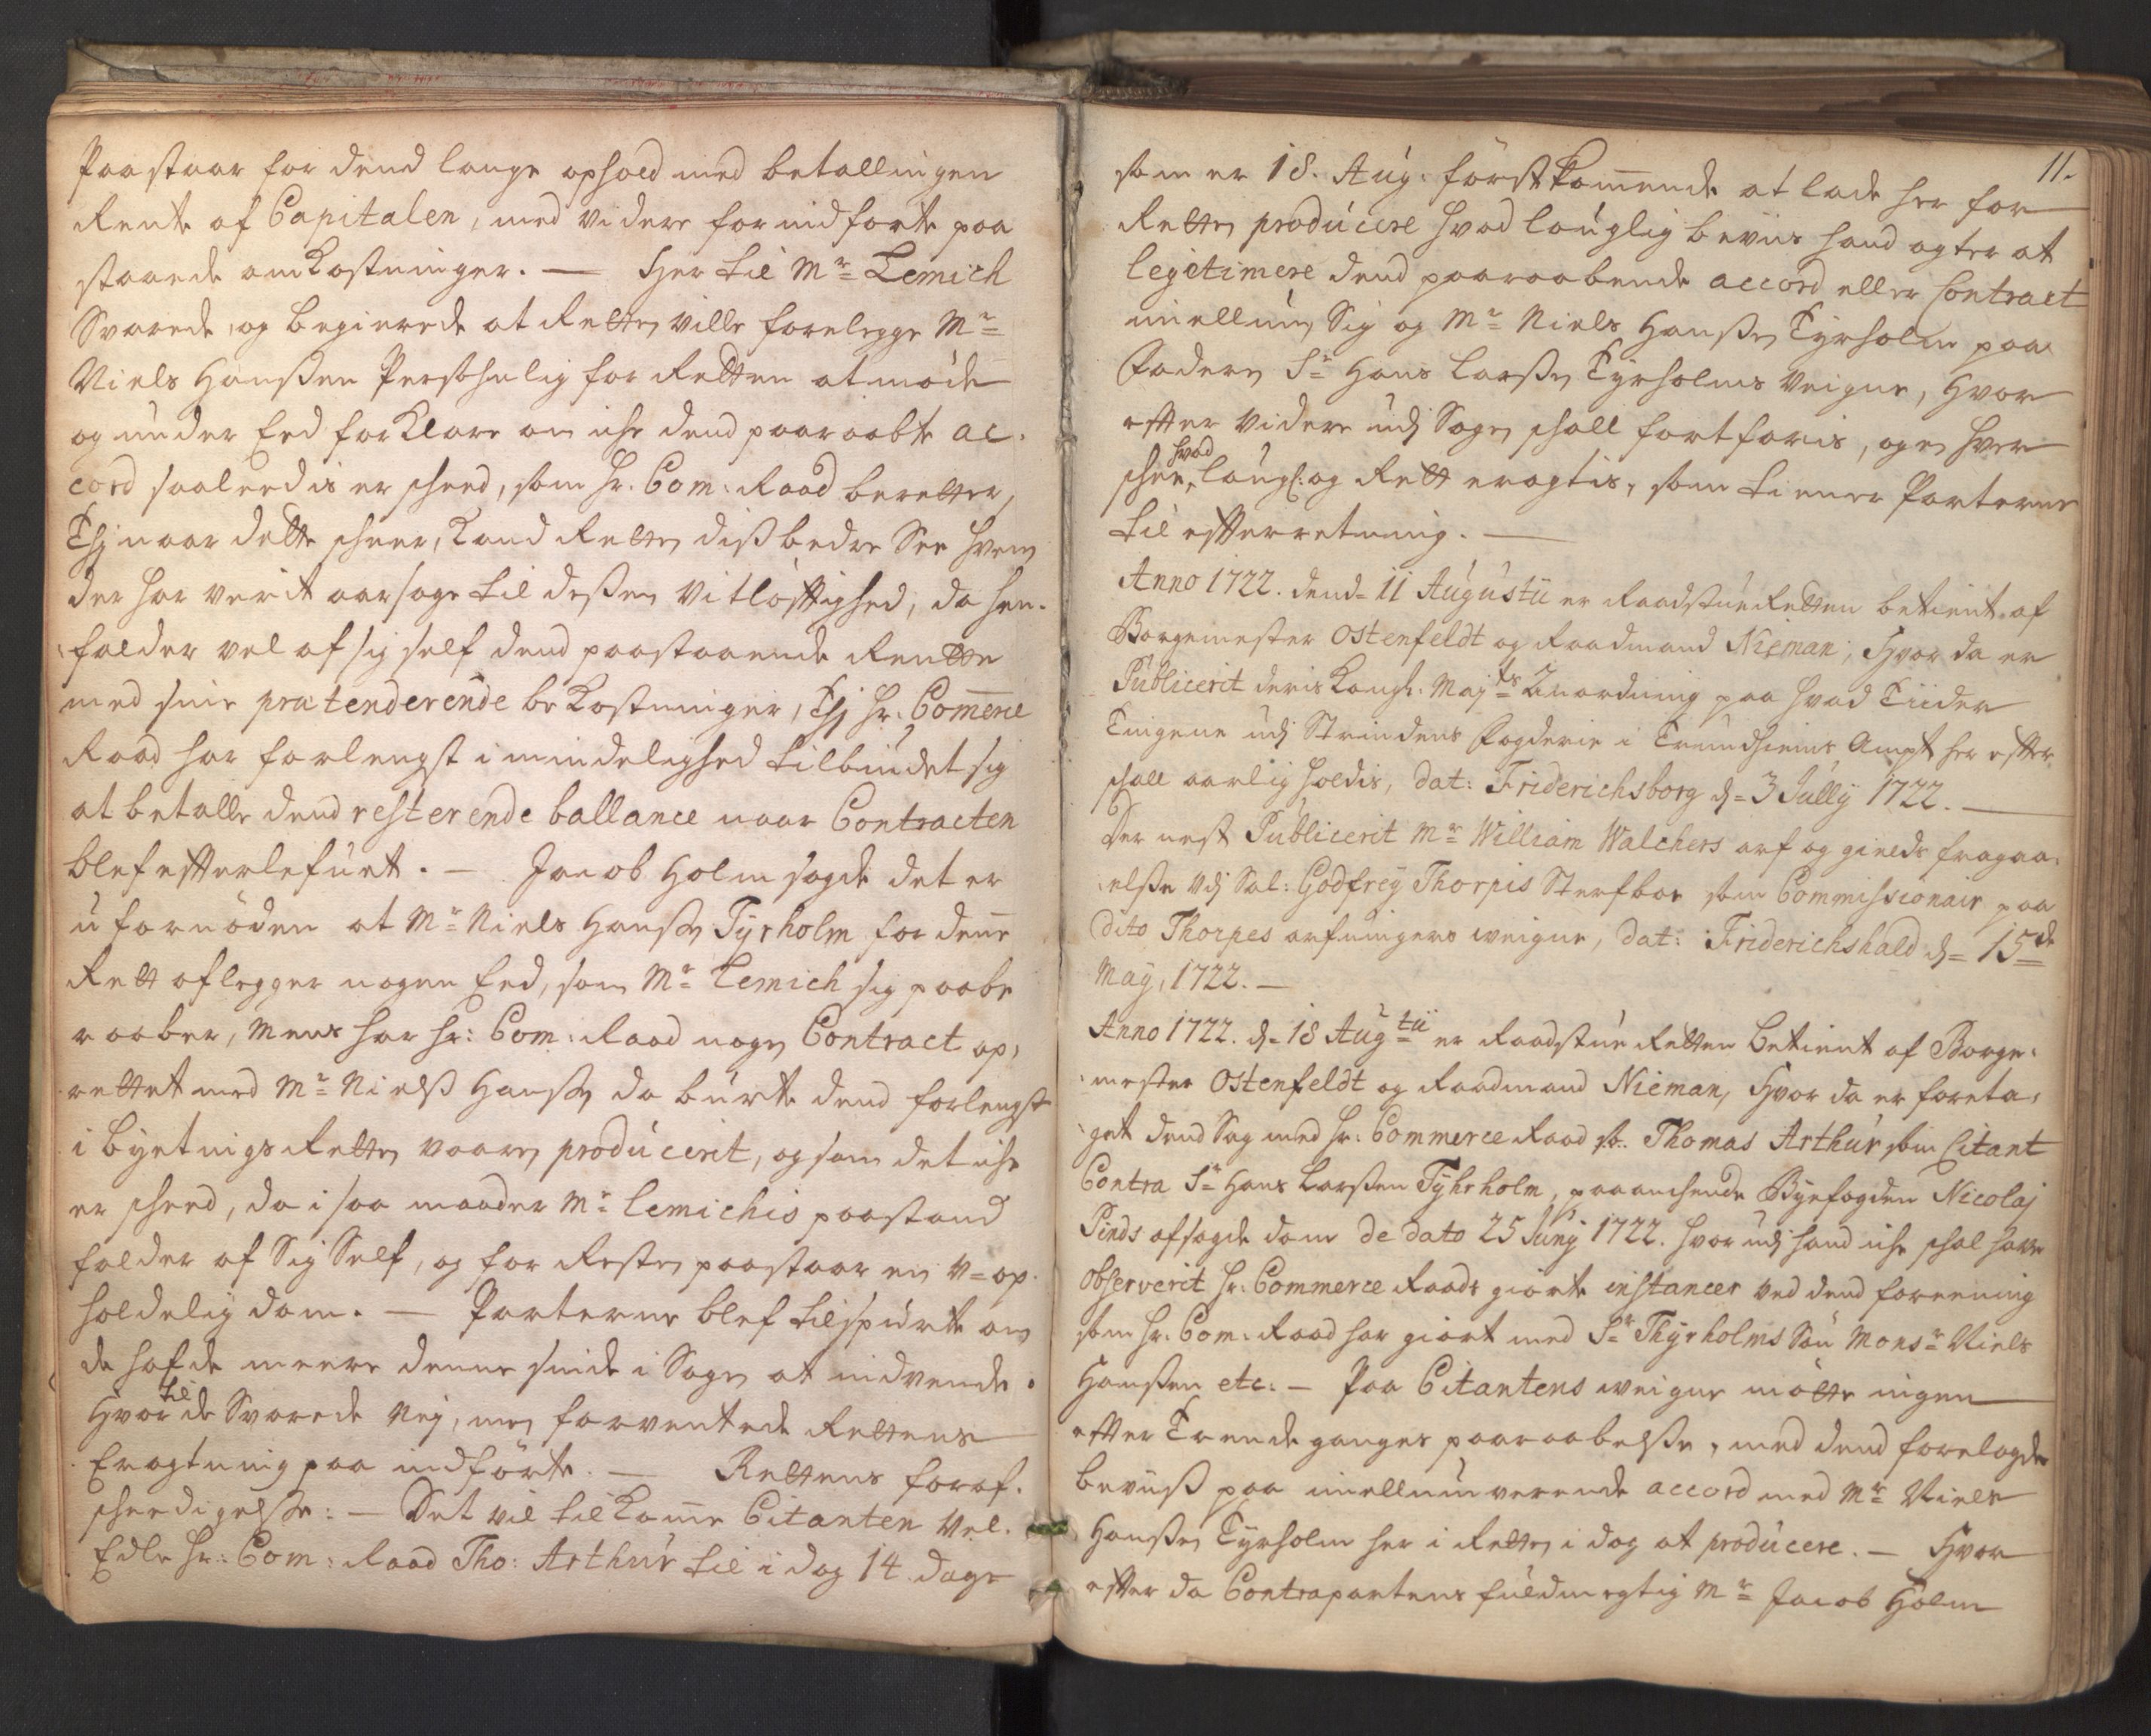 Paastaar for dend lange ophold med betallingen
Rente af Capitalen, med videre for indførte paa
staaende omkostninger. — Her til Mr Lemich
Svarede, og begierede at Retten ville forelegge Mr
Niels Hanßen Persohnlig for Retten at møde
og under Eed forklare om iche dend paaraabte ac-
cord saaleedis er scheed, som Hr. Com: Raad beretter,
Thj naar dette scheer, kand Retten diß bedre See hvem
der har verit aarsage til deßen vitløftighed, da hen-
falder vel af sig self dend paastaaende Rentte
med sine prætenderende bekostninger, Thj Hr. Comerce
Raad har forlengst i mindelighed tilbundet sig
at betalle dend resterende ballance naar Contracten
blef efterlefuet. — Jacob Holm sagde det er
ufornøden at Mr Niels Hanßen Tyrholm for dene
Rett aflegger nogen Eed, som Mr Lemich sig paabe
raaber, Mens har Hr: Com: Raad nogen Contract op-
rettet med Mr Nielß Hanßen da burte dend forlengst
i byetings Retten vaaren producerit, og som det iche
er scheed, da i saa maader Mr Lemichis paastand
falder af Sig Self, og for Resten paastaar en u-op-
holdelig dom. — Parterne blef tilspurt om
de hafde meere denne sinde i Sagen at indvende.
Hvor til de Svarede Nej, men forventede Rettens
Eragtning paa indførte. — Rettens foraf-
scheedigelße: — Det vil tilkome Citanten Vel-
Edle Hr: Com: Raad Tho: Arthur til i dag 14 dage
11.
som er 18. Aug: førstkomende at lade her for
Retten producere hvad lauglig beviis hand agter at
legitimere dend paaraabende accord eller Contract
imellum Sig og Mr Niels Hanßen Tyrholm paa
Faderen Sr Hans Larßen Tyrholms Veigne, hvor
efter videre udj Sagen schall fortfaris, og en hver
schee hvad laugl: og Rett eragtis, som tiener Parterne
til efterretning. —
Anno 1722. dend 11 Augustii er Raadstue Retten betient af
Borgemester Ostenfeldt og Raadmand Nieman, Hvor da er
Publicerit deris Kongl: Mayts anordning paa hvad Tiider
Tingene udj Strindens Fogderie i Trundhiems Ampt her efter
schall aarlig holdis, dat: Friderichsborg d. 3 Jully 1722. —
Der nest Publicerit Mr William Walchers arf og gields fragaa-
elße udj Sal: Godfrey Thorpis Sterfboe som Commissionair paa
dito Thorpes arfuingers weigne, dat: Friderichshald d. 15de
May, 1722. —
Anno 1722. d. 18 Augtii er Raadstue Retten Betient af Borge-
mester Ostenfeldt og Raadmand Nieman, Hvor da er foreta-
get dend Sag med Hr: Commerce Raad Thomas Arthur som Citant
Contra Sr Hans Larßen Tyhrholm, paaanchende Byefogden Nicolaj
Pinds afsagde dom de dato 25 Junj 1722. hvor udj hand iche schal have
observerit Hr: Commerce Raads giorte instancer ved dend foreening
som Hr. Com: Raad har giort med Sr Thyrholms Søn Monsr Niels
Hanßen etc: — Paa Citantens weigne møtte ingen
efter Trende ganges paaraabelße, med dend forelagde
beviiß paa imellumverende accord med Mr Niels
Hanßen Tyrholm her i Retten i dag at producere. — Hvor
efter da Contrapartens fuldmegtig Mr Jacob Holm